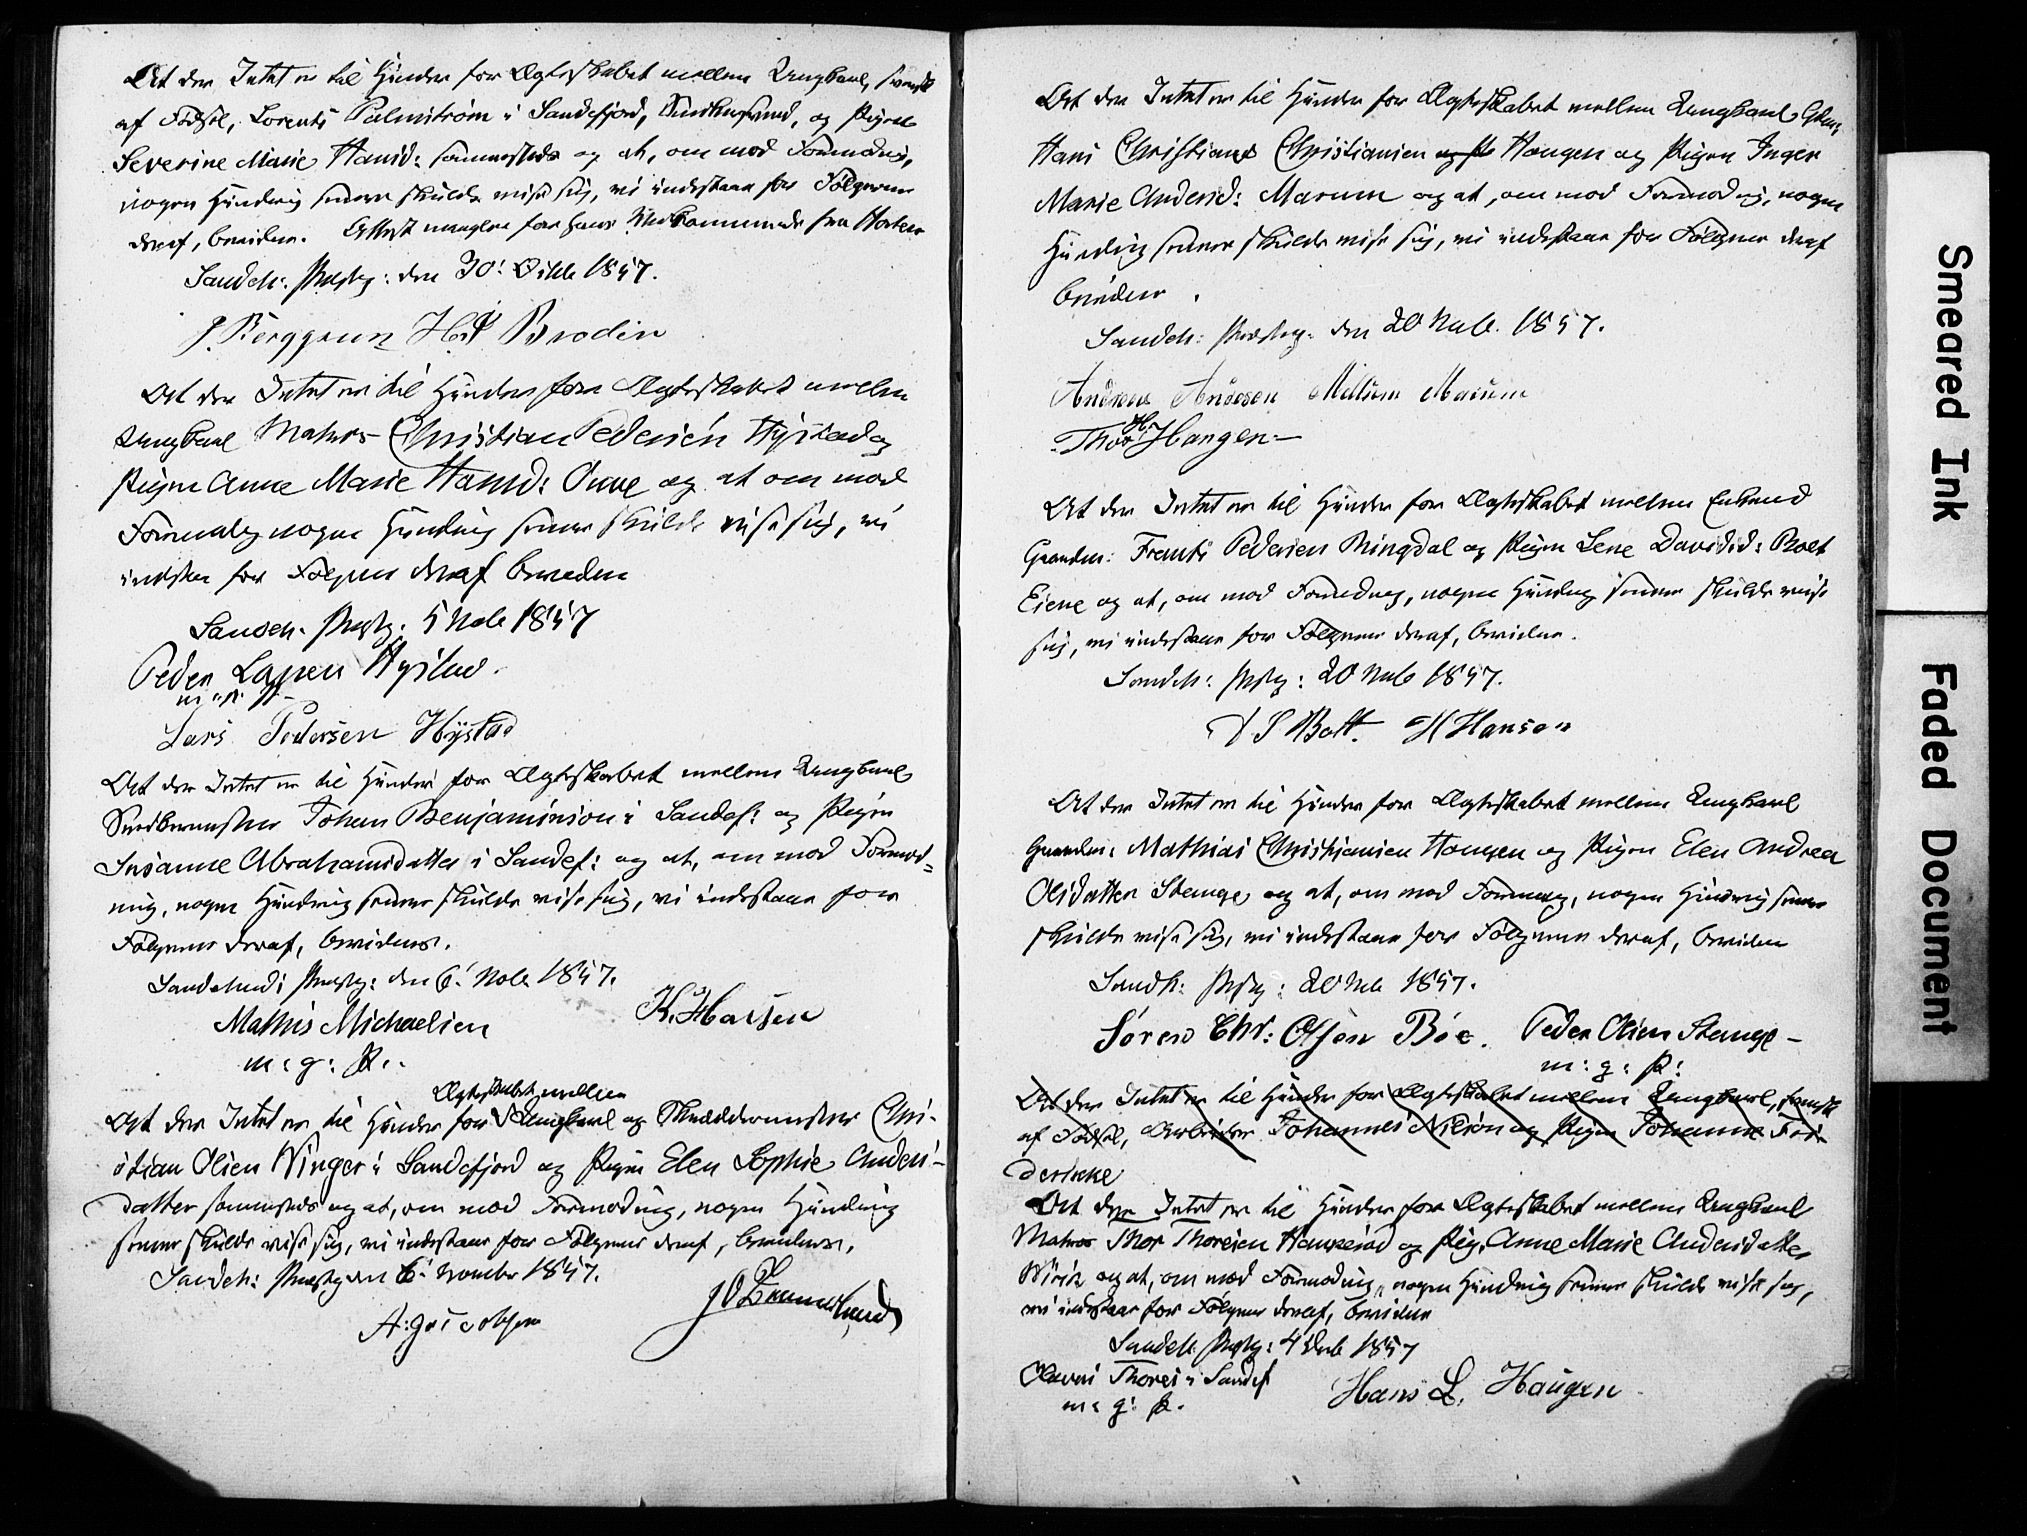 At der Intet er til Hinder for Ægteskabet mellem Ungkarl, svensk
af Fødsel, Lorents Palmstrøm i Sandefjord, og Pigen
Severine Marie Hansd: sammesteds og at, om mod Formodng,
nogen Hindring senere skulde vise sig, vi indestaae for Følgerne
deraf, bevidner. Attest mangler for hans fra Horten
Sandeh: Præstg: den 30' Octbr 1857.
J. Berggreen H. Brodin
At der Intet er til Hinder for Ægteskabet mellem
Ungkarl Matros Christian Pedersen Hystad og
Pigen Anne Marie Hansd: Ouve og at om mod
Formodng nogen Hindring senere skulde vise sig, vi
indestaa for Følgerne deraf bevidne
Sandeh. Præstg. 5 Novb 1857
Peder Larsen Hystad.
m. g. P.
Lars Pedersen Hystad
At der Intet er til Hinder for Ægteskabet mellem Ungkarl
Smedemester Johan Benjaminson i Sandef: og Pigen
Susanne Abrahamsdatter i Sandef: og at, om mod Formod=
ning, nogen Hindring senere skulde vise sig, vi indestaae for
Følgerne deraf, bevidnes.
Sandehreds Præstg: den 6' Novb. 1857.
Mathis Michaelsen K. Hansen
m: g: P.
Ægteskabet mellem
At der Intet er til Hinder for Ungkarl og Skræddermester Chri-
stian Olsen Winger i Sandefjord og Pigen Elen Sophie Anders-
datter sammesteds og at, om mod Formodning, nogen Hindring
senere skulde vise sig, vi indestaae for Følgerne deraf, bevidnes,
Sandeh: Præstg den 6' November 1857.
A: Jacobsen
At der Intet er til Hinder for Ægteskabet mellem Ungkarl
Hans Christians Christiansen og P Haugen og Pigen Inger
Marie Andersd: Marum og at, om mod Formodng, nogen
Hindring senere skulde vise sig, vi indestaae for Følgerne deraf
bevidner.
Sandeh: Præstg: den 20 Novb. 1857.
Andreas Andesen Mellum Marum
Thor H. Haugen
At der Intet er til Hinder for Ægteskabet mellem Enkemd
Gaardm: Frants Pedersen Ringdal og Pigen Lene Davidsd: Bolt
Eiene og at, om mod Formodng, nogen Hindring senere skulde vise
sig, vi indestaae for Følgerne deraf, bevidne.
Sandeh: Præstg: 20 Novb 1857.
D S Bolt. H Hansen
At der Intet er til Hinder for Ægteskabet mellem Ungkarl
Gaardm: Mathias Christiansen Haugen og Pigen Elen Andrea
Olsdatter Stange og at, om mod Formodng, nogen Hindring senere
skulde vise sig, vi indestaae for Følgerne deraf, bevidne
Sandh: Præstg: 20 Nvb 1857.
Søren Chr: Olsen Bøe. Peder Olsen Stange
m: g: P:
At der Intet er til Hinder for Ægteskabet mellem Ungkarl, svensk
af Fødsel, Arbeider Johannes Nilson og Pigen Johanne Fre
derikke
At der Intet er til Hinder for Ægteskabet mellem Ungkarl
Matros Thor Thoresen Haukerød og Pig. Anne Marie Andersdatter
Virik og at, om mod Formodning, nogen Hindring senere skulde vise sig,
vi indestaae for Følgerne deraf, bevidne
Sandeh: Præstg: 4 Decb 1857
Thores i Sandef Hans L. Haugen
m: g: P.
Smeared Ink
Faded Document